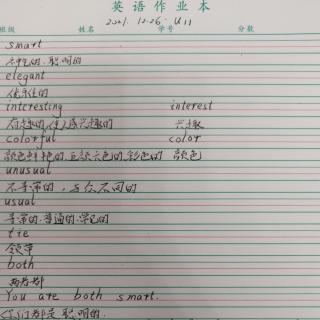 英语作业本
班级 姓名 学号 分数
2021.12.26. U11
smart
聪明的
elegant
优雅的
interesting interest
有趣的,感兴趣的 兴趣
colorful color
颜色鲜艳的,五颜六色的,彩色的 颜色
unusual
不寻常的,与众不同的
usual
寻常的,普通的,常见的
tie
领带
both
两者都
You are both smart.
你们都是聪明的.